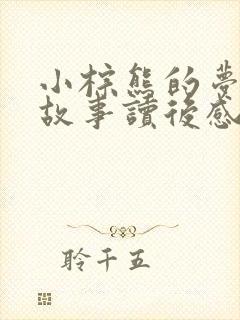 小棕熊的夢
故事讀後感
聆千五